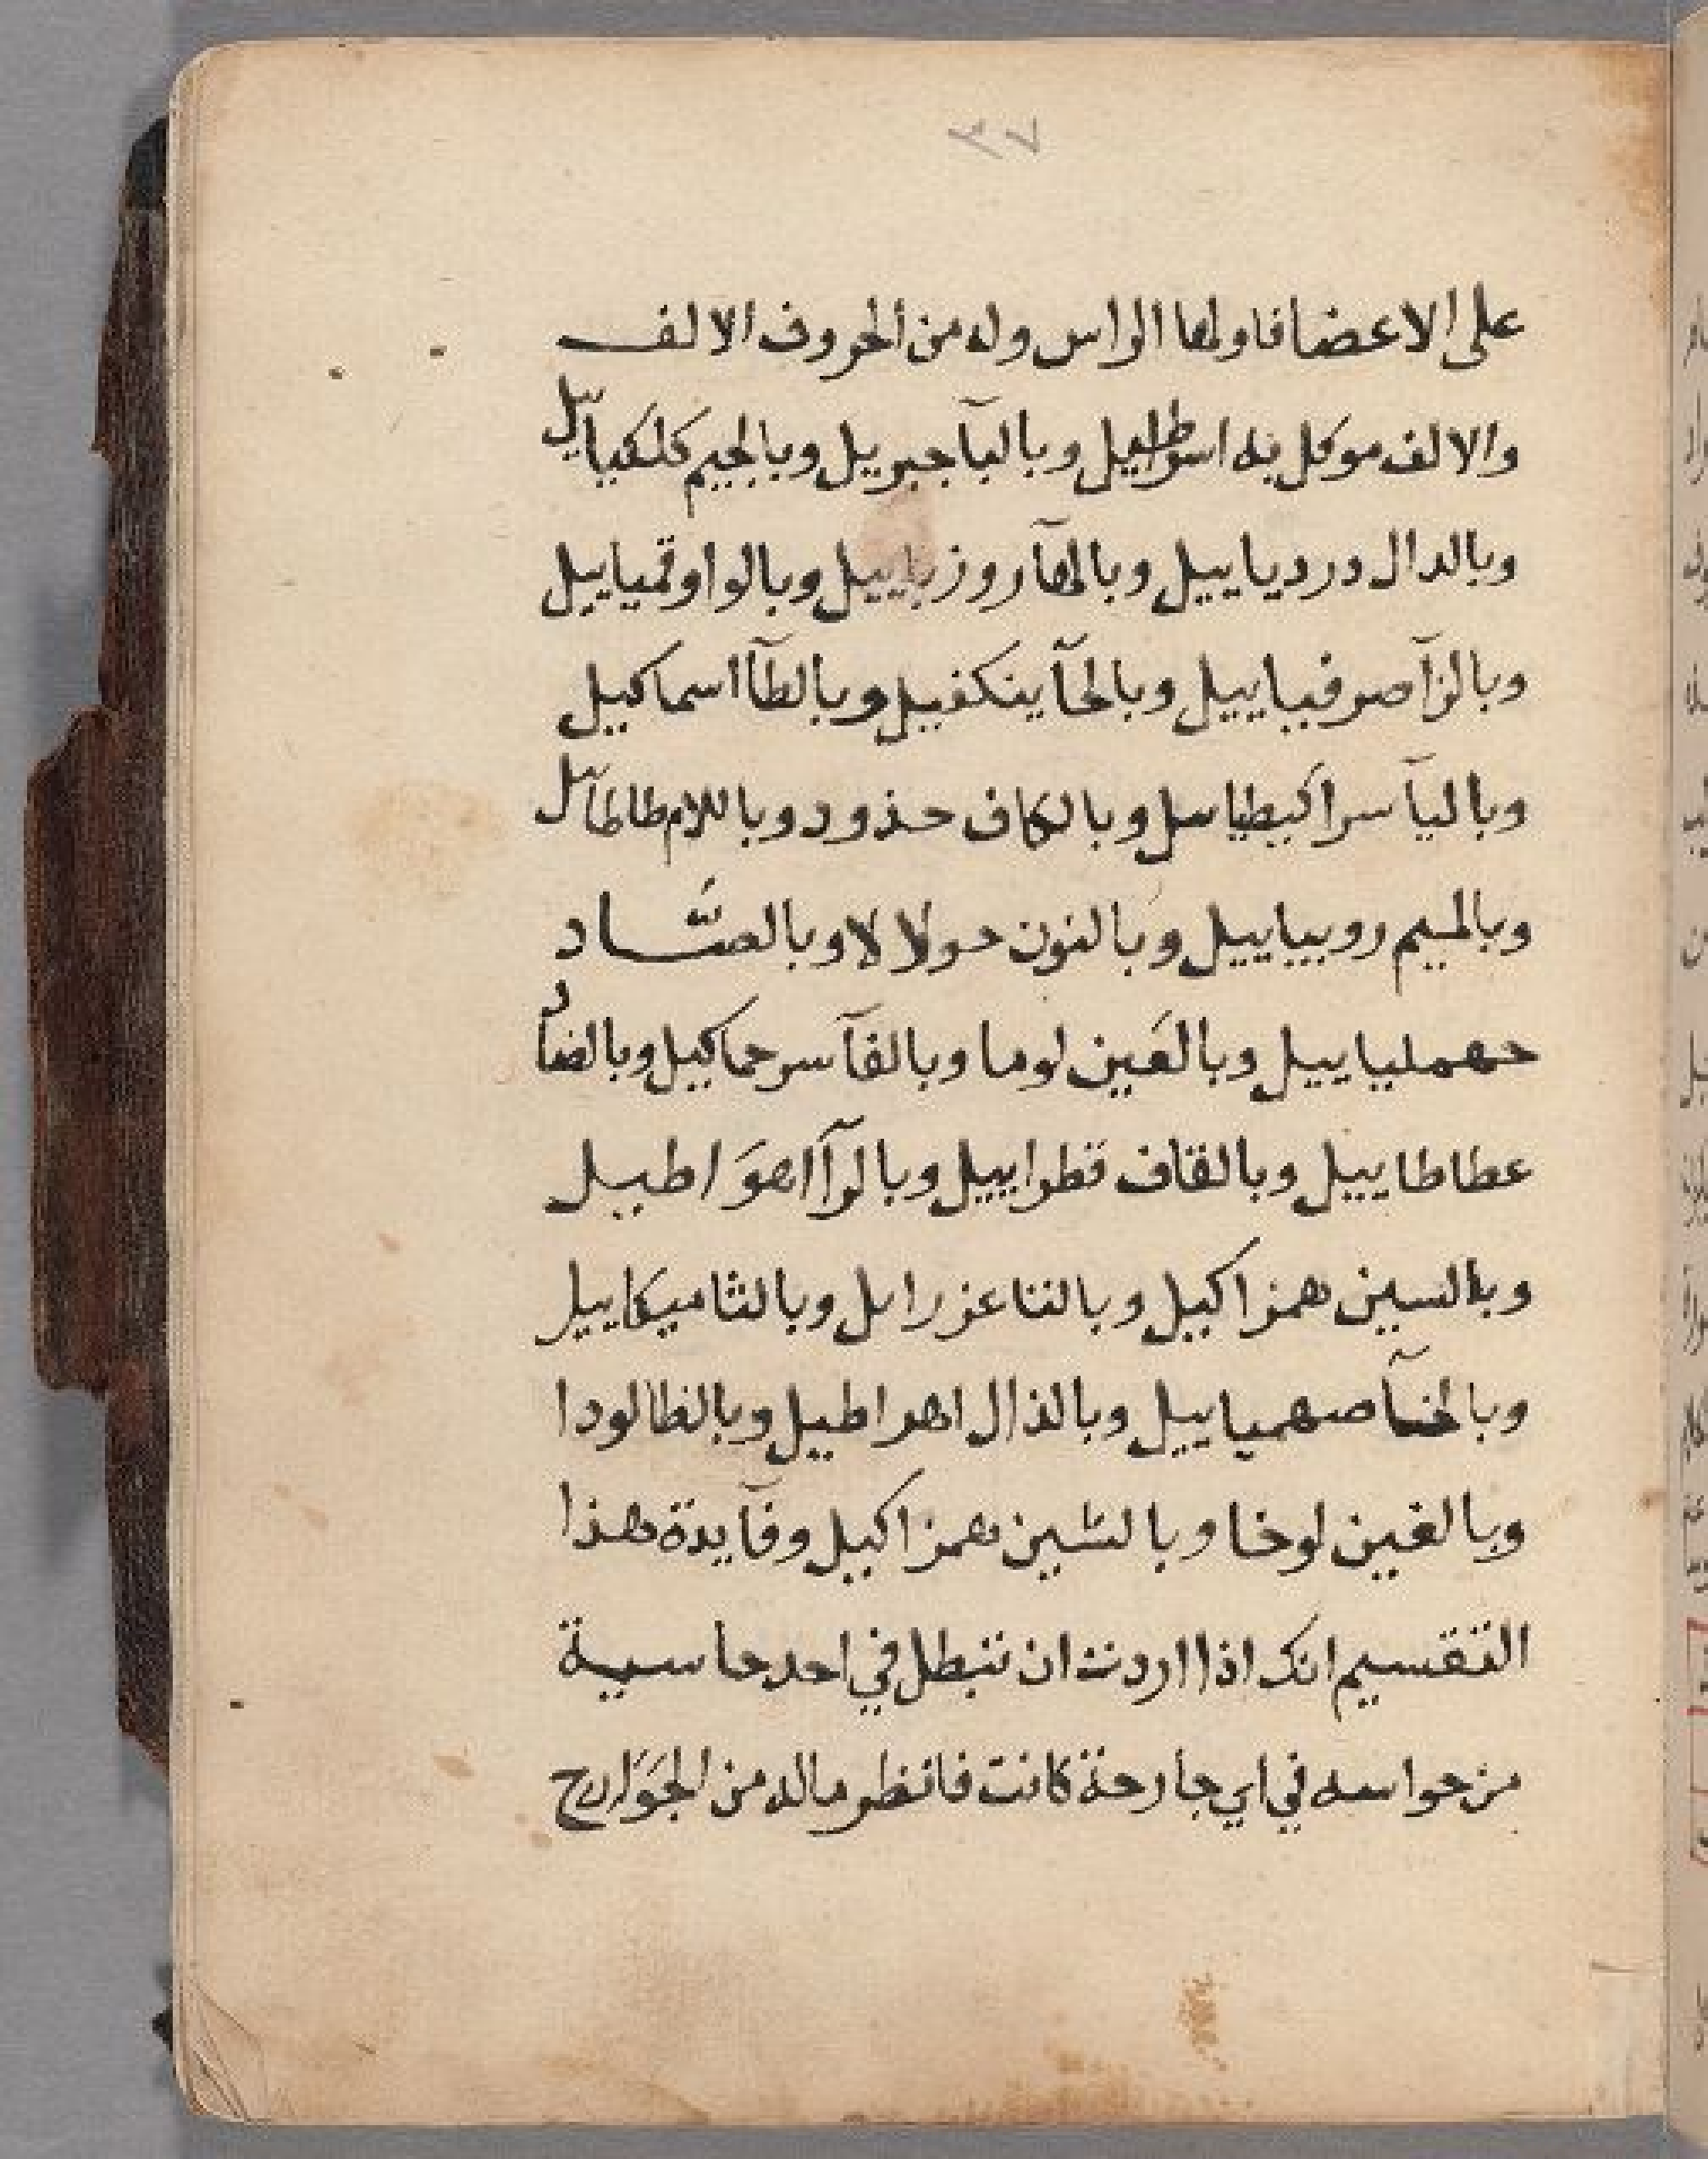 ٣٧
على الاعضا فاولها الراس وله من الحروف الالف
والالف موكل به وبالبآ جبريل وبالجيم كلكياييل
وبالدال دردياييل وبالهآ روزياييل وبالواو قمياييل
وبالزآ صرفياييل وبالحآ ينكفيل وبالطآ اسماكيل
وباليآ وبالكاف وباللام
وبالميم روبياييل وبالنون حولالا وبالصّاد
حهملياييل وبالعَين لوما وبالفآ سرحماكيل وبالضاد
عطاطاييل وبالقاف قطراييل وبالرآ اهوَاطيل
وبالسين همزاكيل وبالتا عزراىل وبالثا ميكاييل
وبالخآ صهمياييل وبالذال اهراطيل وبالظا لودا
وبالغين لوخا وبالشين همزاكيل وفآيدة هذا
التقسيم انك اذا اردت ان تبطل في احد حاسية
من حواسه في اي جارحة كانت فانظر ماله من الجوَارح